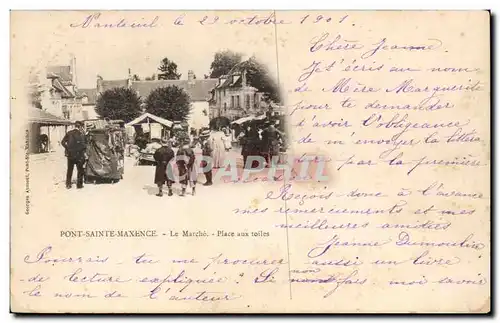 Nanteuil le 29 octobre 1901.
Chère Jeanne
Je t'écris au nom
de Mère Marguerite
pour te demander
d'avoir l'obligeance
de m'envoyer la
par la première
Reçois donc à l'avance
mes remerciements et mes
meilleures amitiés
Jeanne Dumoulin
PONT-SAINTE-MAXENCE. - Le Marché. - Place aux toiles
Pourrais-tu me procurer aussi un livre
de lecture expliquée? Si non fais moi savoir
le nom de l'auteur
CPARAMA.COM